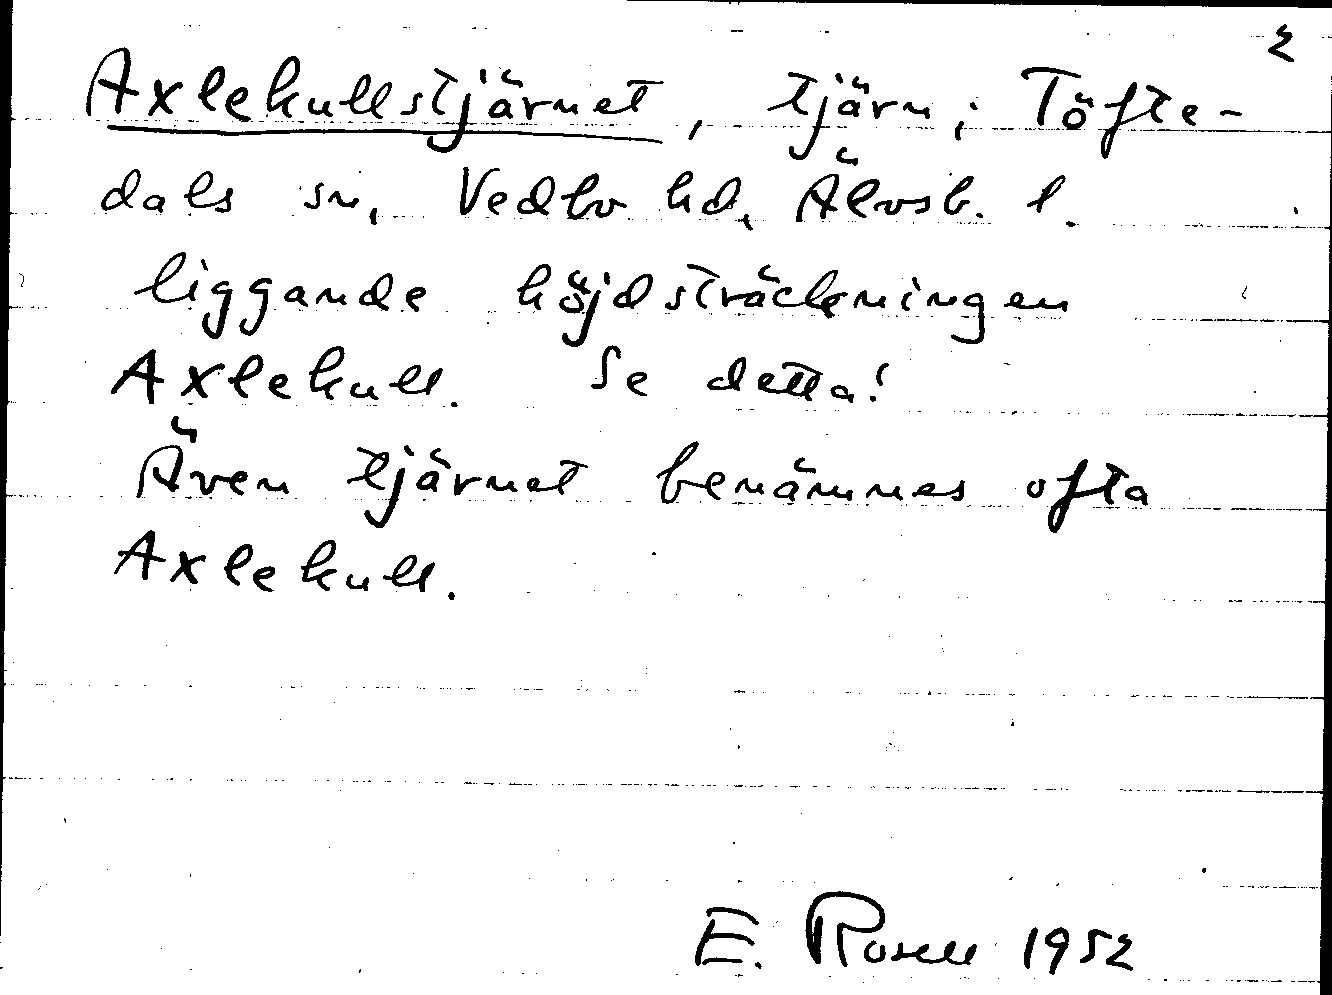 2
Axlekullstjärnet, tjärn i Töfte-
dals sn, Vedbo hd, Älvsb. l.
liggande höjdsträckningen
Axlekull. Se detta!
Även tjärnet benämnes ofta
Axlekull.
E. Rosell 1952